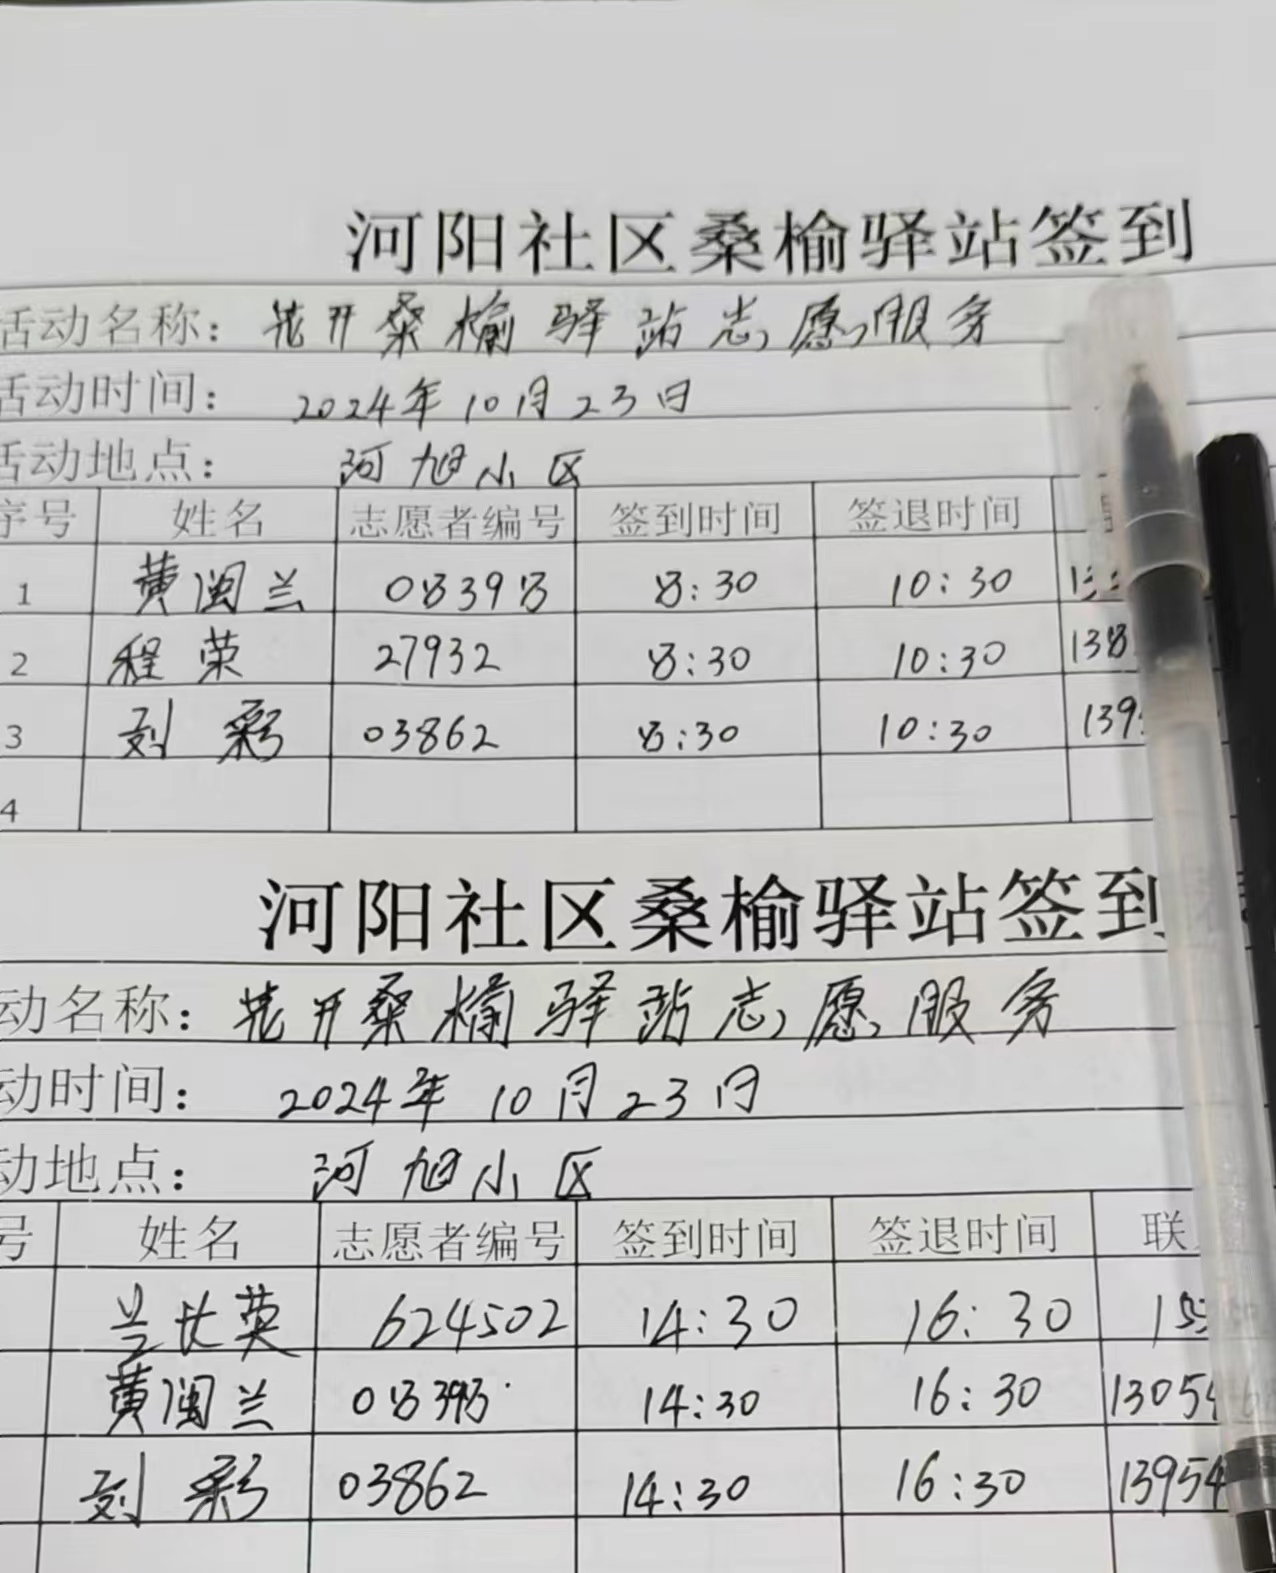 河阳社区桑榆驿站签到
活动名称：花开桑榆驿站志愿服务
活动时间：2024年10月23日
活动地点：河旭小区
序号 姓名 志愿者编号 签到时间 签退时间
1 黄闽兰 08398 8:30 10:30
2 程荣 27932 8:30 10:30 138
3 刘彩 03862 8:30 10:30 139
4
河阳社区桑榆驿站签到
动名称：花开桑榆驿站志愿服务
动时间：2024年10月23日
动地点：河旭小区
号 姓名 志愿者编号 签到时间 签退时间 联
兰长英 624502 14:30 16:30 15
黄闽兰 08398 14:30 16:30 1305
刘彩 03862 14:30 16:30 13954